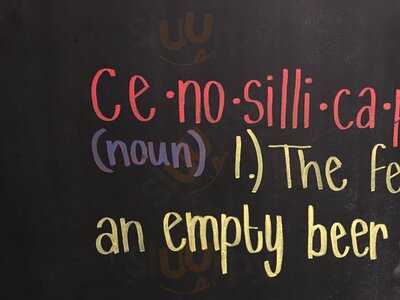 Ce·no·silli·ca·p
(noun) 1.) The fe
an empty beer